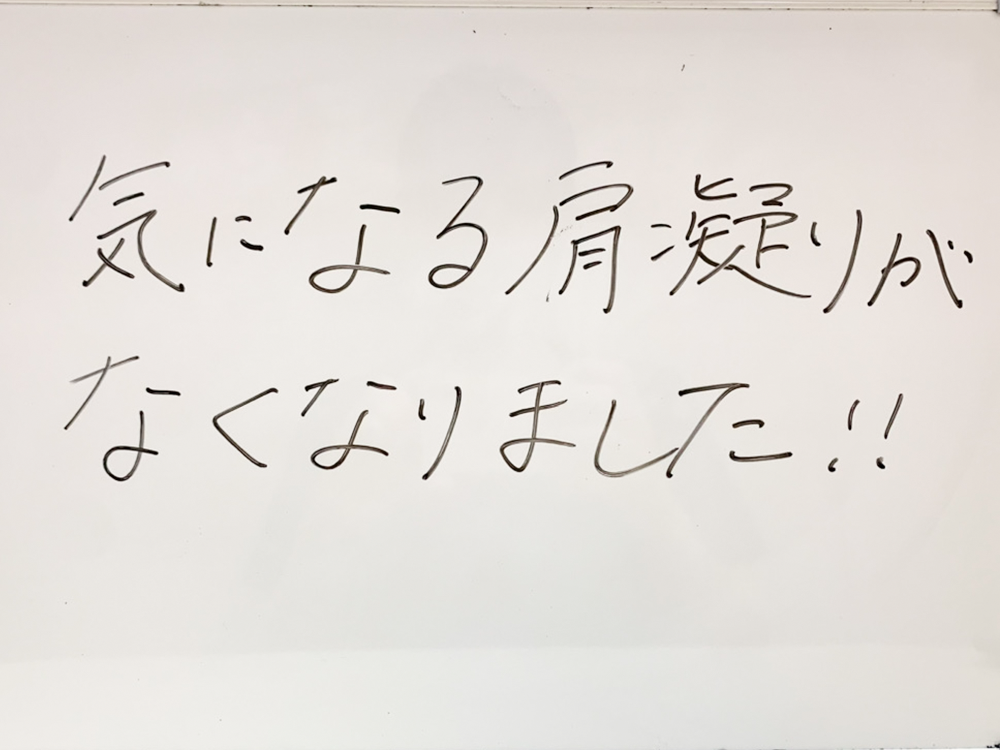 気になる肩凝りが
なくなりました!!